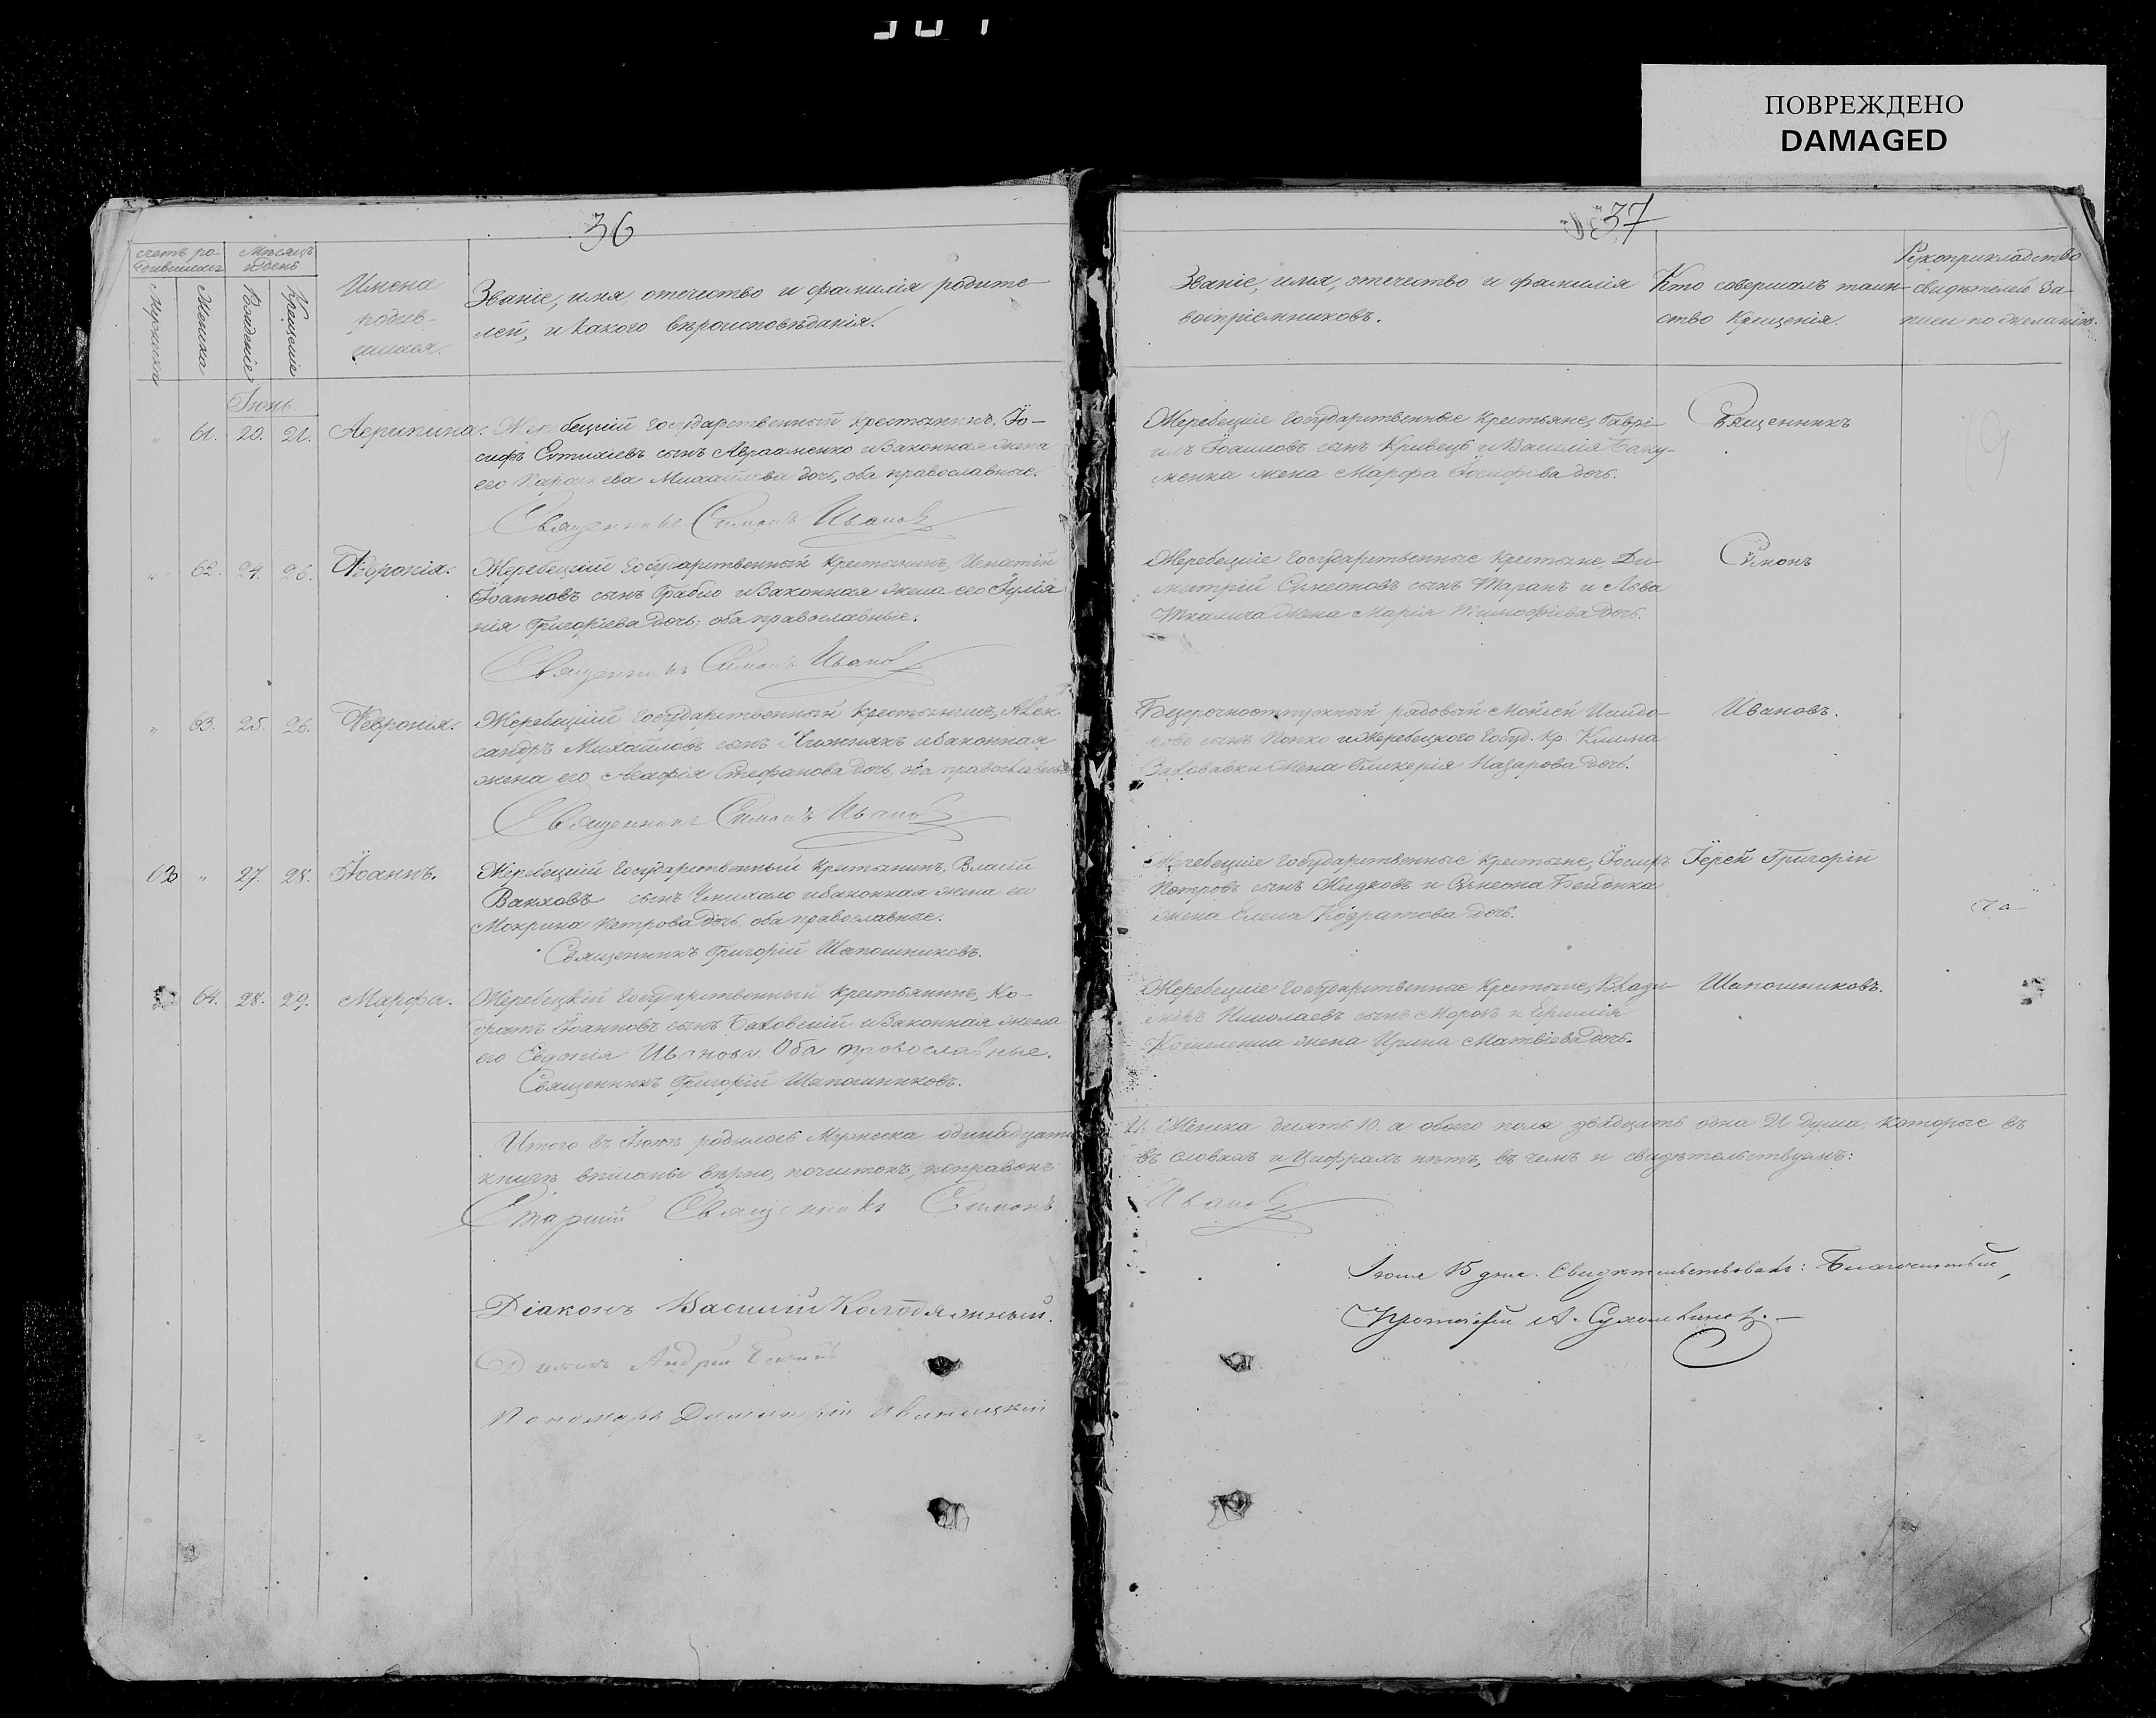 ПОВРЕЖДЕНО
DAMAGED
36
счетъ ро-
дившихся
Мѣсяцъ
и день
Мужеска
Женска
Рожденіе
Крещенія
Имена
родив-
шихся.
Званіе, имя, отечество и фамилія родите-
лей, и какого вѣроисповѣданія.
Іюнь.
" 61. 20. 21. Агрипина. Жеребецкій государственный крестьянинъ, Іо-
сифъ Евтихіевъ сынъ Авраменко и законная жена
его Параскева Михайлова дочь, оба православные.
Священникъ Симонъ Ивановъ
" 62. 24. 26. Февронія. Жеребецкій государственный крестьянинъ, Игнатій
Іоанновъ сынъ Грабко и законная жена его Іулiа
нія Григоріева дочь; оба православные.
Священникъ Симонъ Ивановъ
" 63. 25. 26. Февронія. Жеребецкій государственный крестьянинъ, Алек
сандръ Михайловъ сынъ Хижнякъ и законная
жена его Агафія Стефанова дочь, оба православные
Священникъ Симонъ Ивановъ
" 27. 28. Іоаннъ. Жеребецкій государственный крестьянинъ, Власій
Вакховъ сынъ и законная жена его
Мокрина Петрова дочь, оба православные.
Священникъ Григорій Шапошниковъ.
64. 28. 29. Марфа. Жеребецкій государственный крестьянинъ, Ко-
дратъ Іоанновъ сынъ Баковскій и законная жена
его Евдокія Иванова. Оба православные.
Священникъ Григорій Шапошниковъ.
Итого въ Іюнѣ родилось Мужеска одинадцать
книгѣ вписаны вѣрно, почистокъ, поправокъ
Старшій Священникъ Симонъ
Діаконъ Василій Колодяжный.
Андрей
Пономарь Димитрій
37
Званіе, имя, отечество и фамилія
воспріемниковъ.
Кто совершалъ таин-
ство Крещенія.
Рукоприкладство
свидѣтелей за-
писи по желанію.
Жеребецкіе государственные крестьяне, Гаврі-
илъ Іоанновъ сынъ Кривецъ и Василія Баку-
менка жена Марфа Іосифова дочь.
Священникъ
Жеребецкіе государственные крестьяне, Ди-
митрій Симеоновъ сынъ Таранъ и Льва
Ткалича жена Марія Тимофіева дочь.
Симонъ
Безсрочноотпускный рядовый Моисей Исидо-
ровъ сынъ Попко и Жеребецкого Госуд. Кр. Клима
жена Гликерія Назарова дочь.
Ивановъ.
Жеребецкіе государственные крестьяне, Іосифъ
Петровъ сынъ Жидковъ и Симеона Бейдика
жена Елена Кодратова дочь.
Іерей Григорій
Жеребецкіе государственные крестьяне, Влади-
міръ Николаевъ сынъ Морозъ и
жена Ирина Матвіева дочь.
Шапошниковъ.
11. Женска десять 10. а обоего пола двадцать одна 21 душа, которые въ
въ словахъ и цифрахъ нѣтъ, въ чемъ и свидѣтельствуемъ:
Ивановъ
Іюля 15 дня. Свидѣтельствовалъ: Благочинный,
Протоіерей А. Сухомлиновъ.